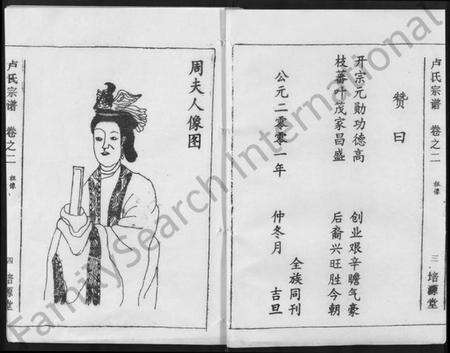 卢氏宗谱 卷之二 祖像
三 培源堂
赞曰
开宗元勋功德高 创业艰辛赡气豪
枝蕃叶茂家昌盛 后裔兴旺胜今朝
公元二零零一年 仲冬月
全族同刊
吉旦
周夫人像图
卢氏宗谱 卷之二 祖像
四 培源堂
FamilySearch International